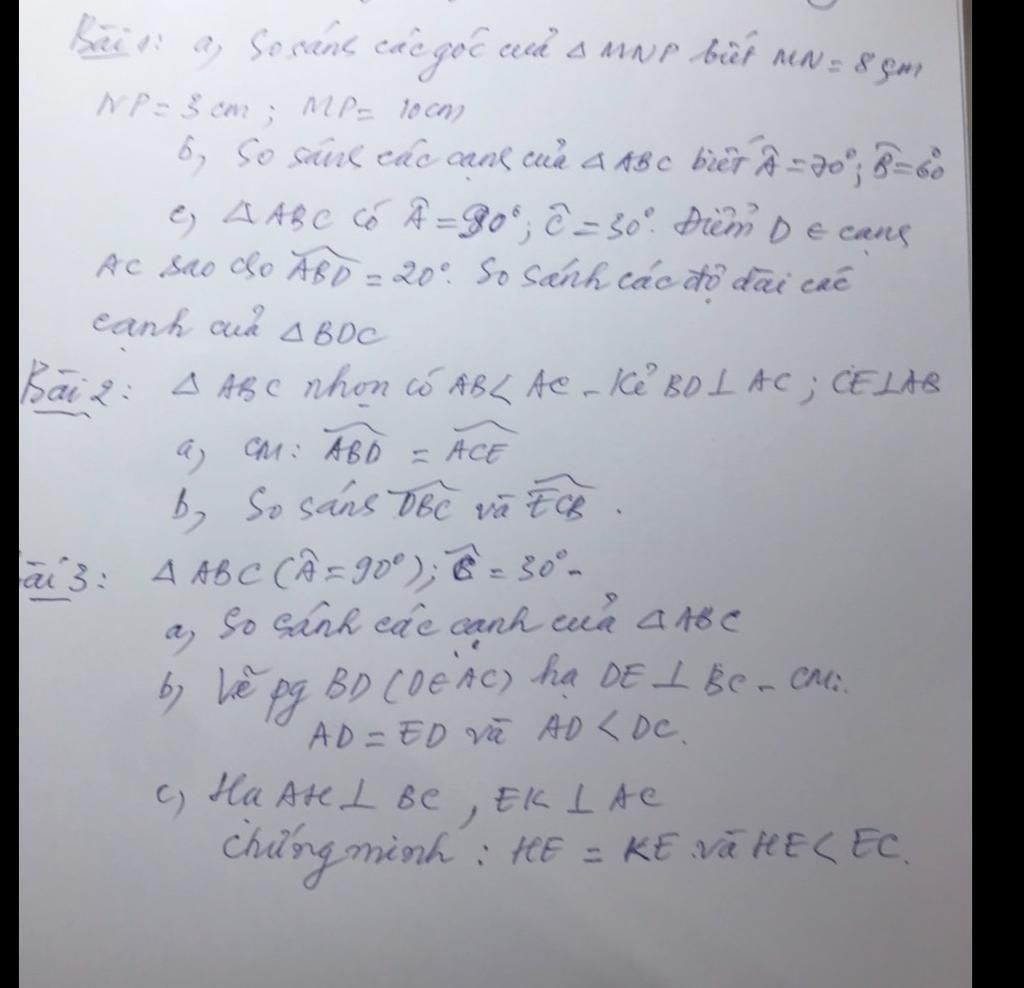 Bài 1: a, So sánh các góc của △ MNP biết MN = 8 cm
NP = 3 cm ; MP = 10 cm
b, So sánh các cạnh của △ ABC biết Â = 70°; B̂ = 60°
c, △ ABC có Â = 90°; Ĉ = 30°. Điểm D ∈ cạnh
AC sao cho ABD = 20°. So sánh các độ dài các
cạnh của △ BDC
Bài 2: △ ABC nhọn có AB < AC - Kẻ BD ⊥ AC ; CE ⊥ AB
a, CM: ABD = ACE
b, So sánh DBC và ECB .
ài 3: △ ABC (Â = 90°); Ĉ = 30° -
a, So sánh các cạnh của △ ABC
b, Vẽ pg BD (D ∈ AC) hạ DE ⊥ BC - CM:
AD = ED và AD < DC.
c, Hạ AH ⊥ BC , EK ⊥ AC
chứng minh : HE = KE và HE < EC.